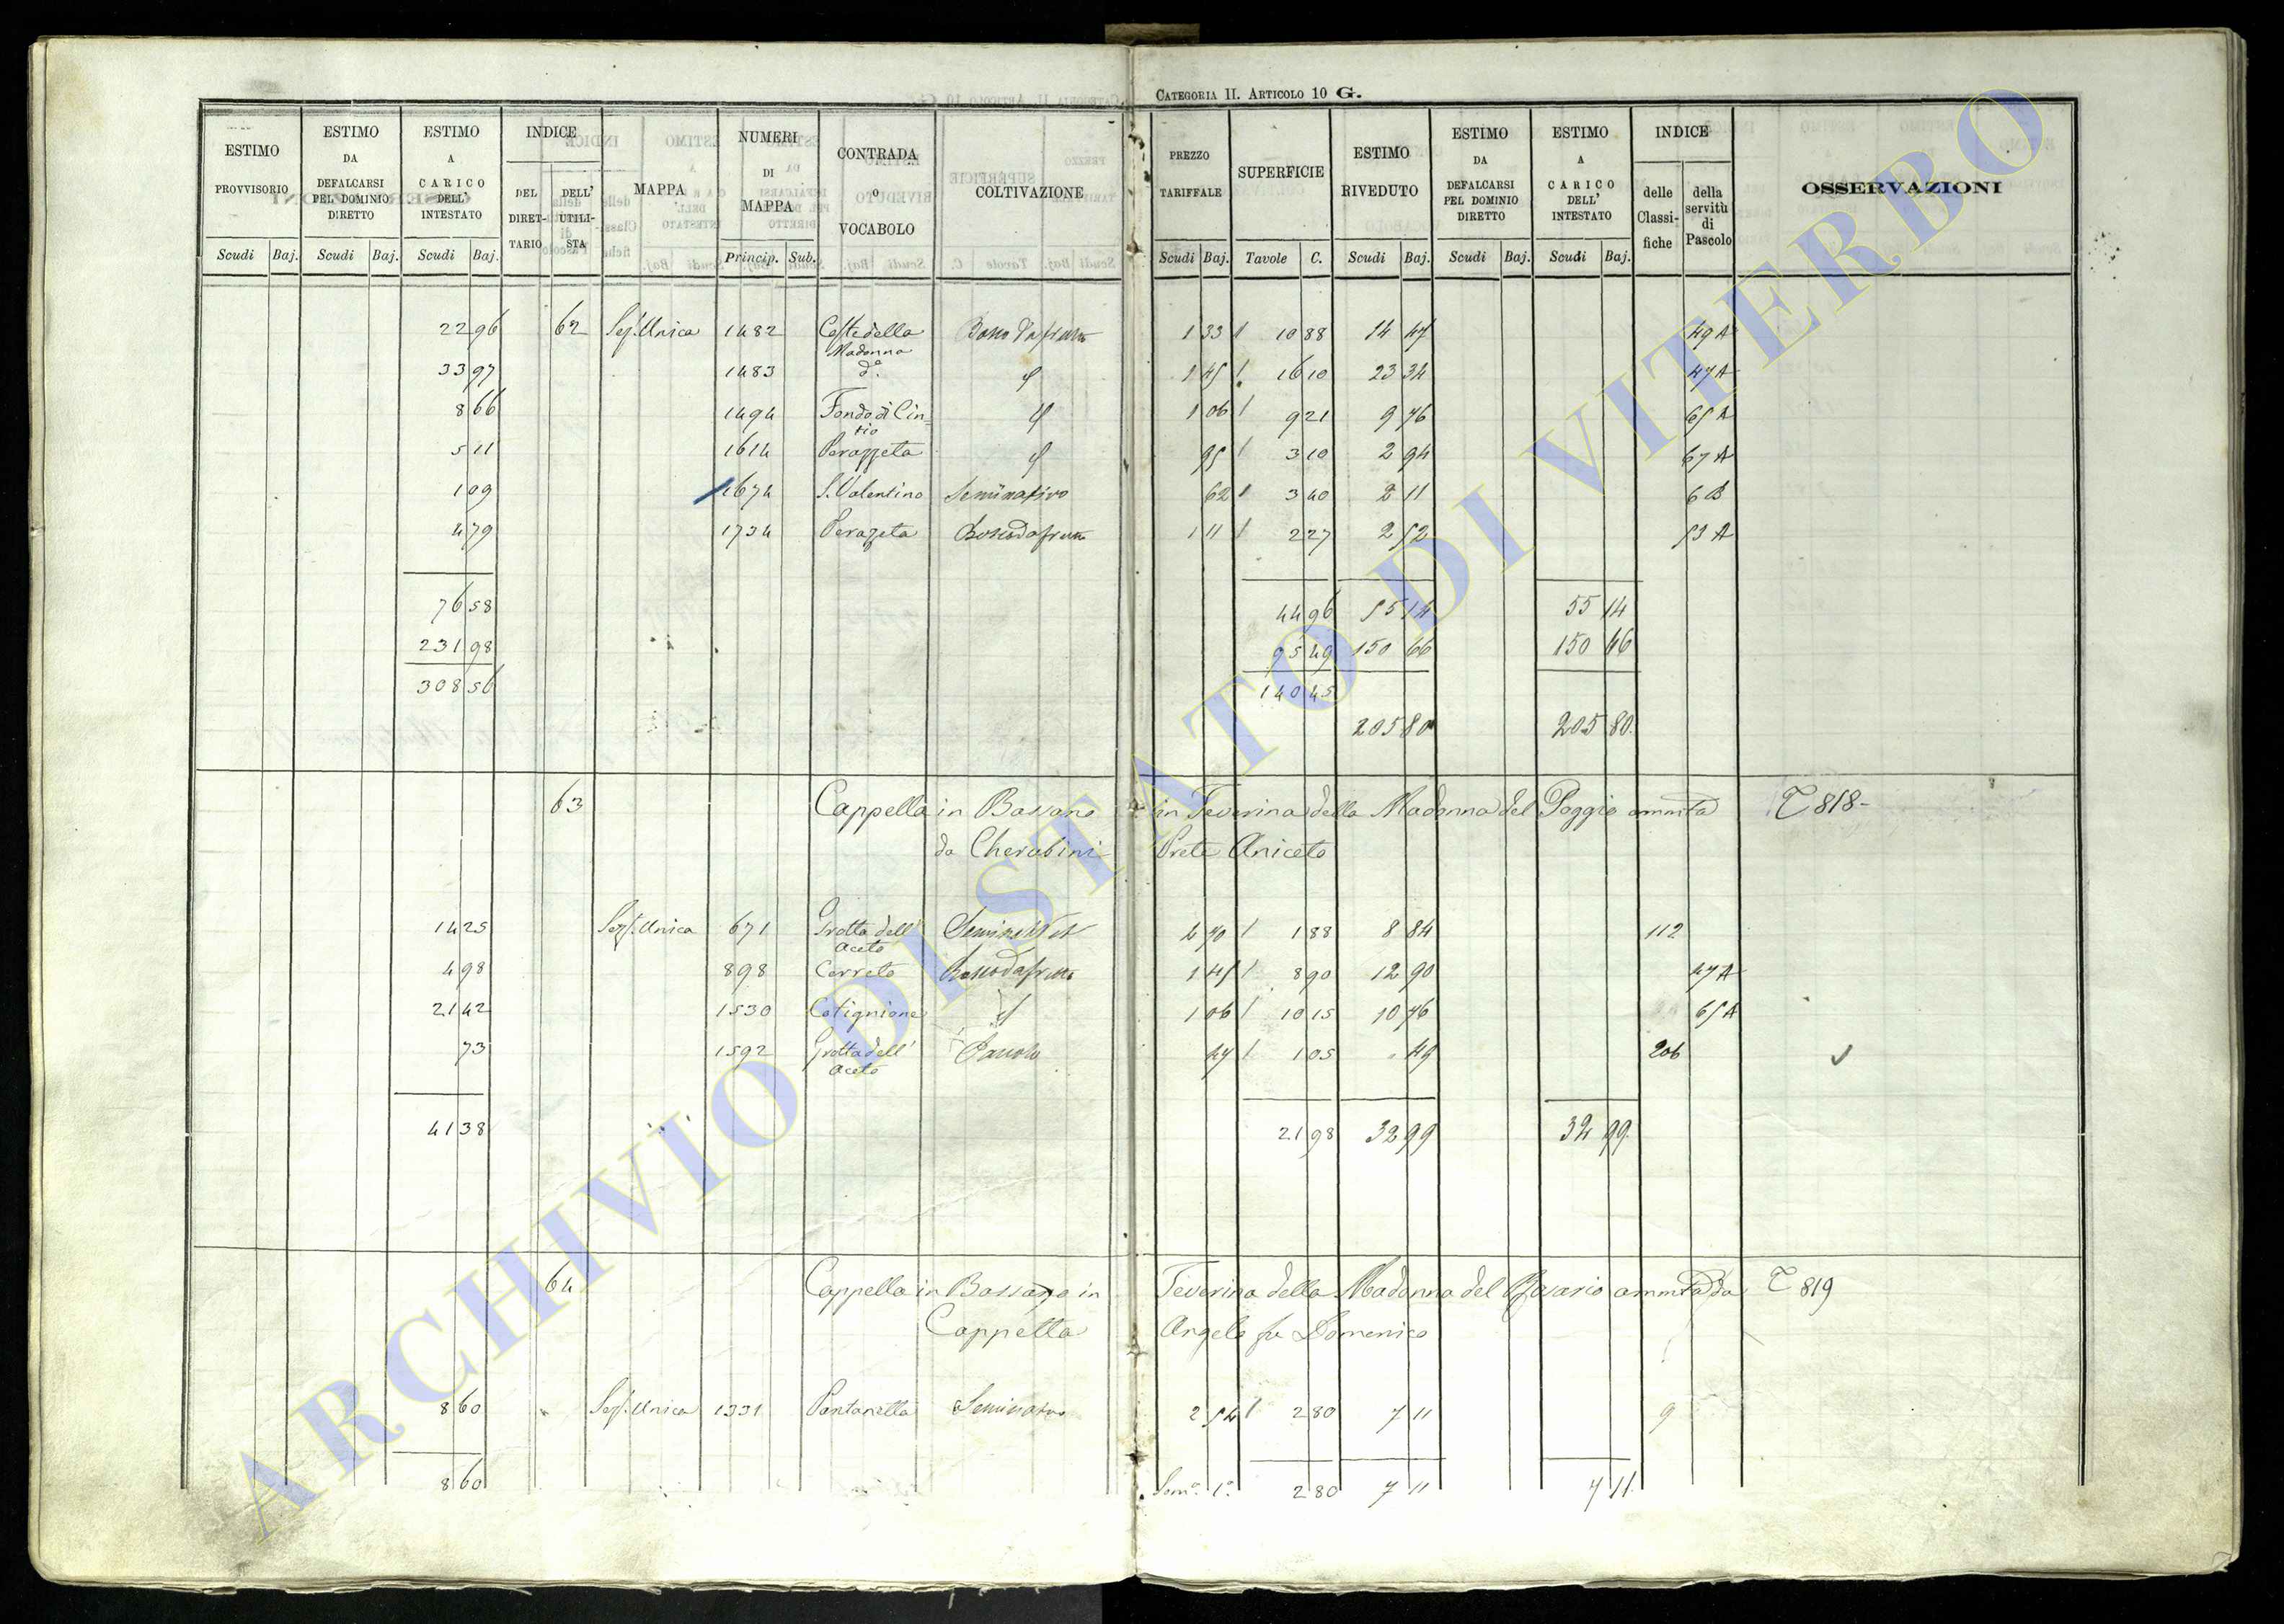 CATEGORIA II. ARTICOLO 10 G.
ESTIMO PROVVISORIO Scudi Baj. | ESTIMO DA DEFALCARSI PEL DOMINIO DIRETTO Scudi Baj. | ESTIMO A CARICO DELL' INTESTATO Scudi Baj. | INDICE DEL DIRETTARIO DELL' UTILISTA | MAPPA | NUMERI DI MAPPA Princip. Sub. | CONTRADA o VOCABOLO | COLTIVAZIONE | PREZZO TARIFFALE Scudi Baj. | SUPERFICIE Tavole C. | ESTIMO RIVEDUTO Scudi Baj. | ESTIMO DA DEFALCARSI PEL DOMINIO DIRETTO Scudi Baj. | ESTIMO A CARICO DELL' INTESTATO Scudi Baj. | INDICE delle Classifiche della servitù di Pascolo | OSSERVAZIONI
22 96 62 Sez. Unica 1482 Coste della Madonna Bosco da frutto 1 33 10 88 14 47 49 A
33 97 1483 d.a 1 45 16 10 23 34 47 A
8 66 1494 Fondo di Cintio 1 06 9 21 9 76 65 A
5 11 1614 Perazzeta 95 3 10 2 94 67 A
1 09 1674 S. Valentino Seminativo 62 3 40 2 11 6 B
4 79 1734 Perazeta Bosco da frutto 1 11 2 27 2 52 53 A
76 58 44 96 55 14 55 14
231 98 95 49 150 66 150 66
308 56 140 45
205 80 205 80
63 Cappella in Bassano in Teverina della Madonna del Poggio ammta T 818-
da Cherubini Prete Aniceto
14 25 Sez. Unica 671 Grotta dell' Aceto 4 70 1 88 8 84 112
4 98 898 Cerreto Bosco da frutto 1 45 8 90 12 90 47 A
21 42 1530 Cotignione 1 06 10 15 10 76 65 A
73 1592 Grotta dell' Aceto Pascolo 47 1 05 49 206
41 38 21 98 32 99 32 99
64 Cappella in Bassano in Teverina della Madonna del Rosario ammta da T 819
Cappetta Angelo fu Domenico
8 60 Sez. Unica 1331 Pantanella Seminativo 2 54 2 80 7 11 9
8 60 Sem.o 1.o 2 80 7 11 7 11
ARCHIVIO DI STATO DI VITERBO